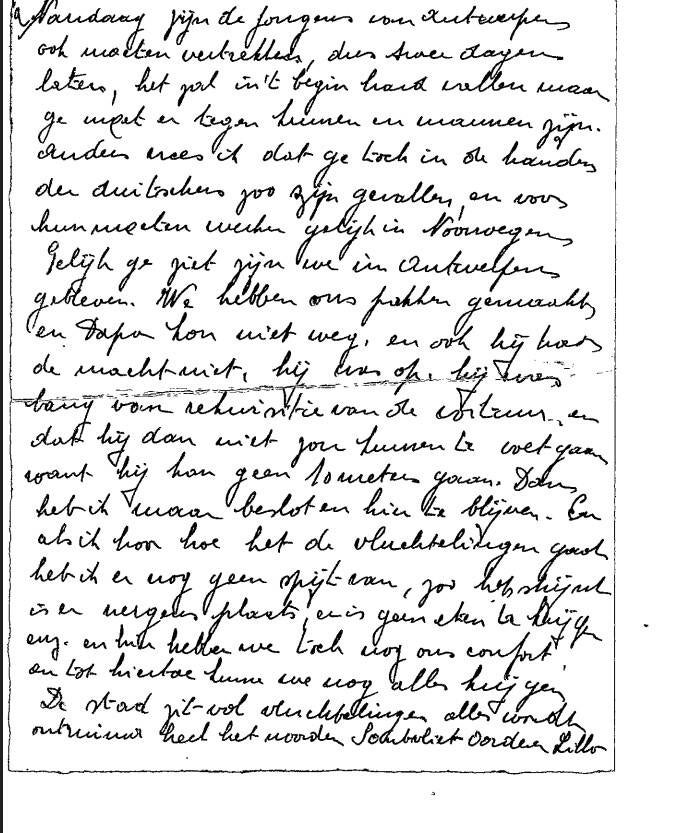 Vandaag zijn de jongens van Antwerpen
ook moeten vertrekken, dus twee dagen
later, het zal in't begin hard vallen maar
ge moet er tegen kunnen en mannen zijn.
Anders vrees ik dat ge toch in de handen
der duitschers zoo zijn gevallen, en voor
hun moeten werken gelijk in Noorwegen
Gelijk ge ziet zijn we in Antwerpen
gebleven. We hebben ons pakken gemaakt
en Papa kon niet weg, en ook hij had
de macht niet, hij was op, hij was
bang van rekwisitie van de voituur, en
dat hij dan niet zou kunnen te voet gaan
want hij kan geen 10 meters gaan. Dan
heb ik maar besloten hier te blijven. En
als ik hoor hoe het de vluchtelingen gaat
heb ik er nog geen spijt van, zoo het schijnt
is er nergens plaats, er is geen eten te krijgen
enz. en hier hebben we toch nog ons confort
en tot hiertoe kunnen we nog alles krijgen
De stad zit vol vluchtelingen alles wordt
ontruimd heel het noorden Santvliet Oorderen Lillo